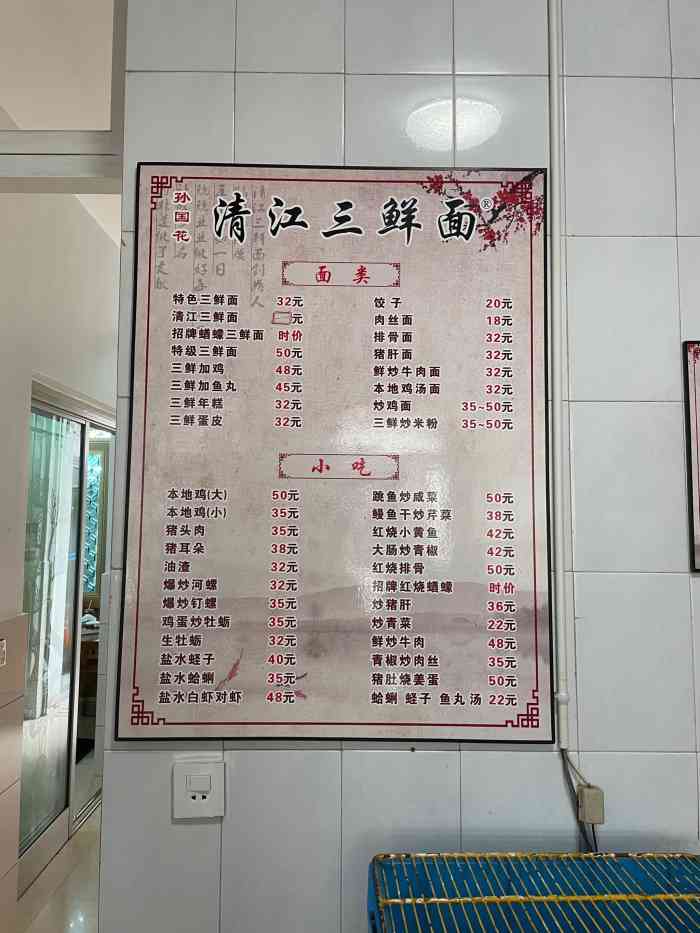 孙国花
清江三鲜面®
面类
特色三鲜面 32元
清江三鲜面 元
招牌蝤蠓三鲜面 时价
特级三鲜面 50元
三鲜加鸡 48元
三鲜加鱼丸 45元
三鲜年糕 32元
三鲜蛋皮 32元
饺子 20元
肉丝面 18元
排骨面 32元
猪肝面 32元
鲜炒牛肉面 32元
本地鸡汤面 32元
炒鸡面 35~50元
三鲜炒米粉 35~50元
小吃
本地鸡(大) 50元
本地鸡(小) 35元
猪头肉 35元
猪耳朵 38元
油渣 32元
爆炒河螺 32元
爆炒钉螺 35元
鸡蛋炒牡蛎 35元
生牡蛎 32元
盐水蛏子 40元
盐水蛤蜊 35元
盐水白虾对虾 48元
跳鱼炒咸菜 50元
鳗鱼干炒芹菜 38元
红烧小黄鱼 42元
大肠炒青椒 42元
红烧排骨 50元
招牌红烧蝤蠓 时价
炒猪肝 36元
炒青菜 22元
鲜炒牛肉 48元
青椒炒肉丝 35元
猪肚烧姜蛋 50元
蛤蜊 蛏子 鱼丸汤 22元